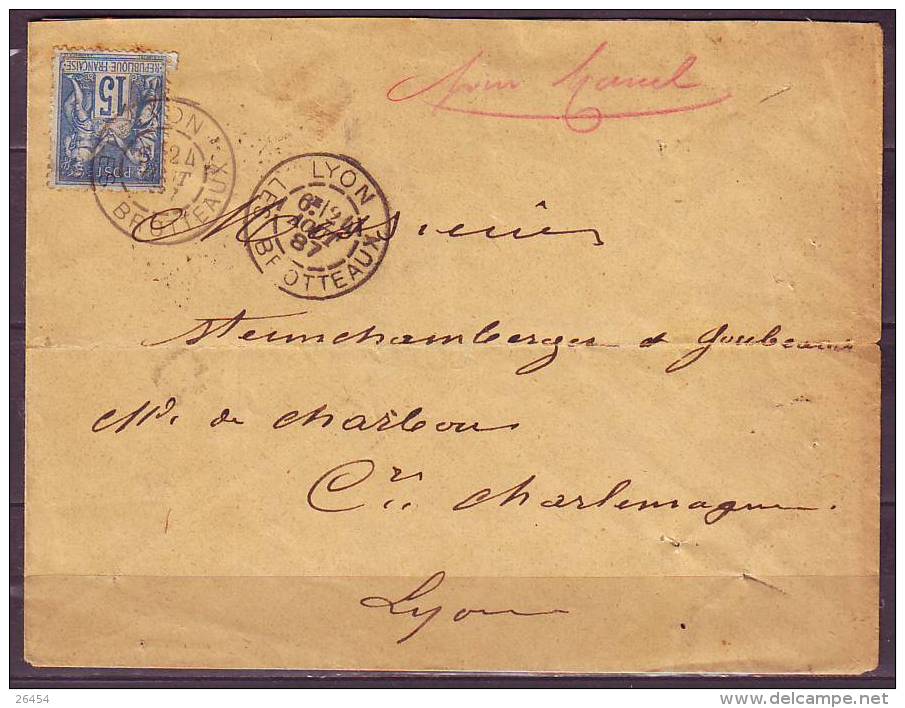 RÉPUBLIQUE FRANÇAISE
15
POSTES
LYON
LES BROTTEAUX
LYON
AOUT
87
LES BROTTEAUX
Messieurs
Steinschamberger & Goubeaux
Mds de charbons
Crs Charlemagne.
Lyon
26454
www.delcampe.net